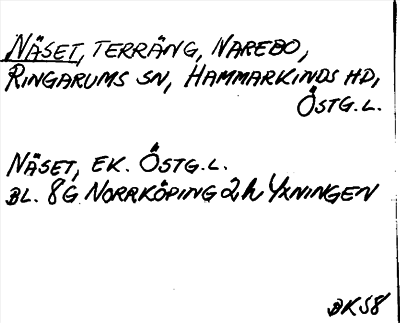 NÄSET, TERRÄNG, NAREBO,
RINGARUMS SN, HAMMARKINDS HD,
ÖSTG.L.
NÄSET, EK. ÖSTG.L.
BL. 8G NORRKÖPING 2h YXNINGEN
BKS8